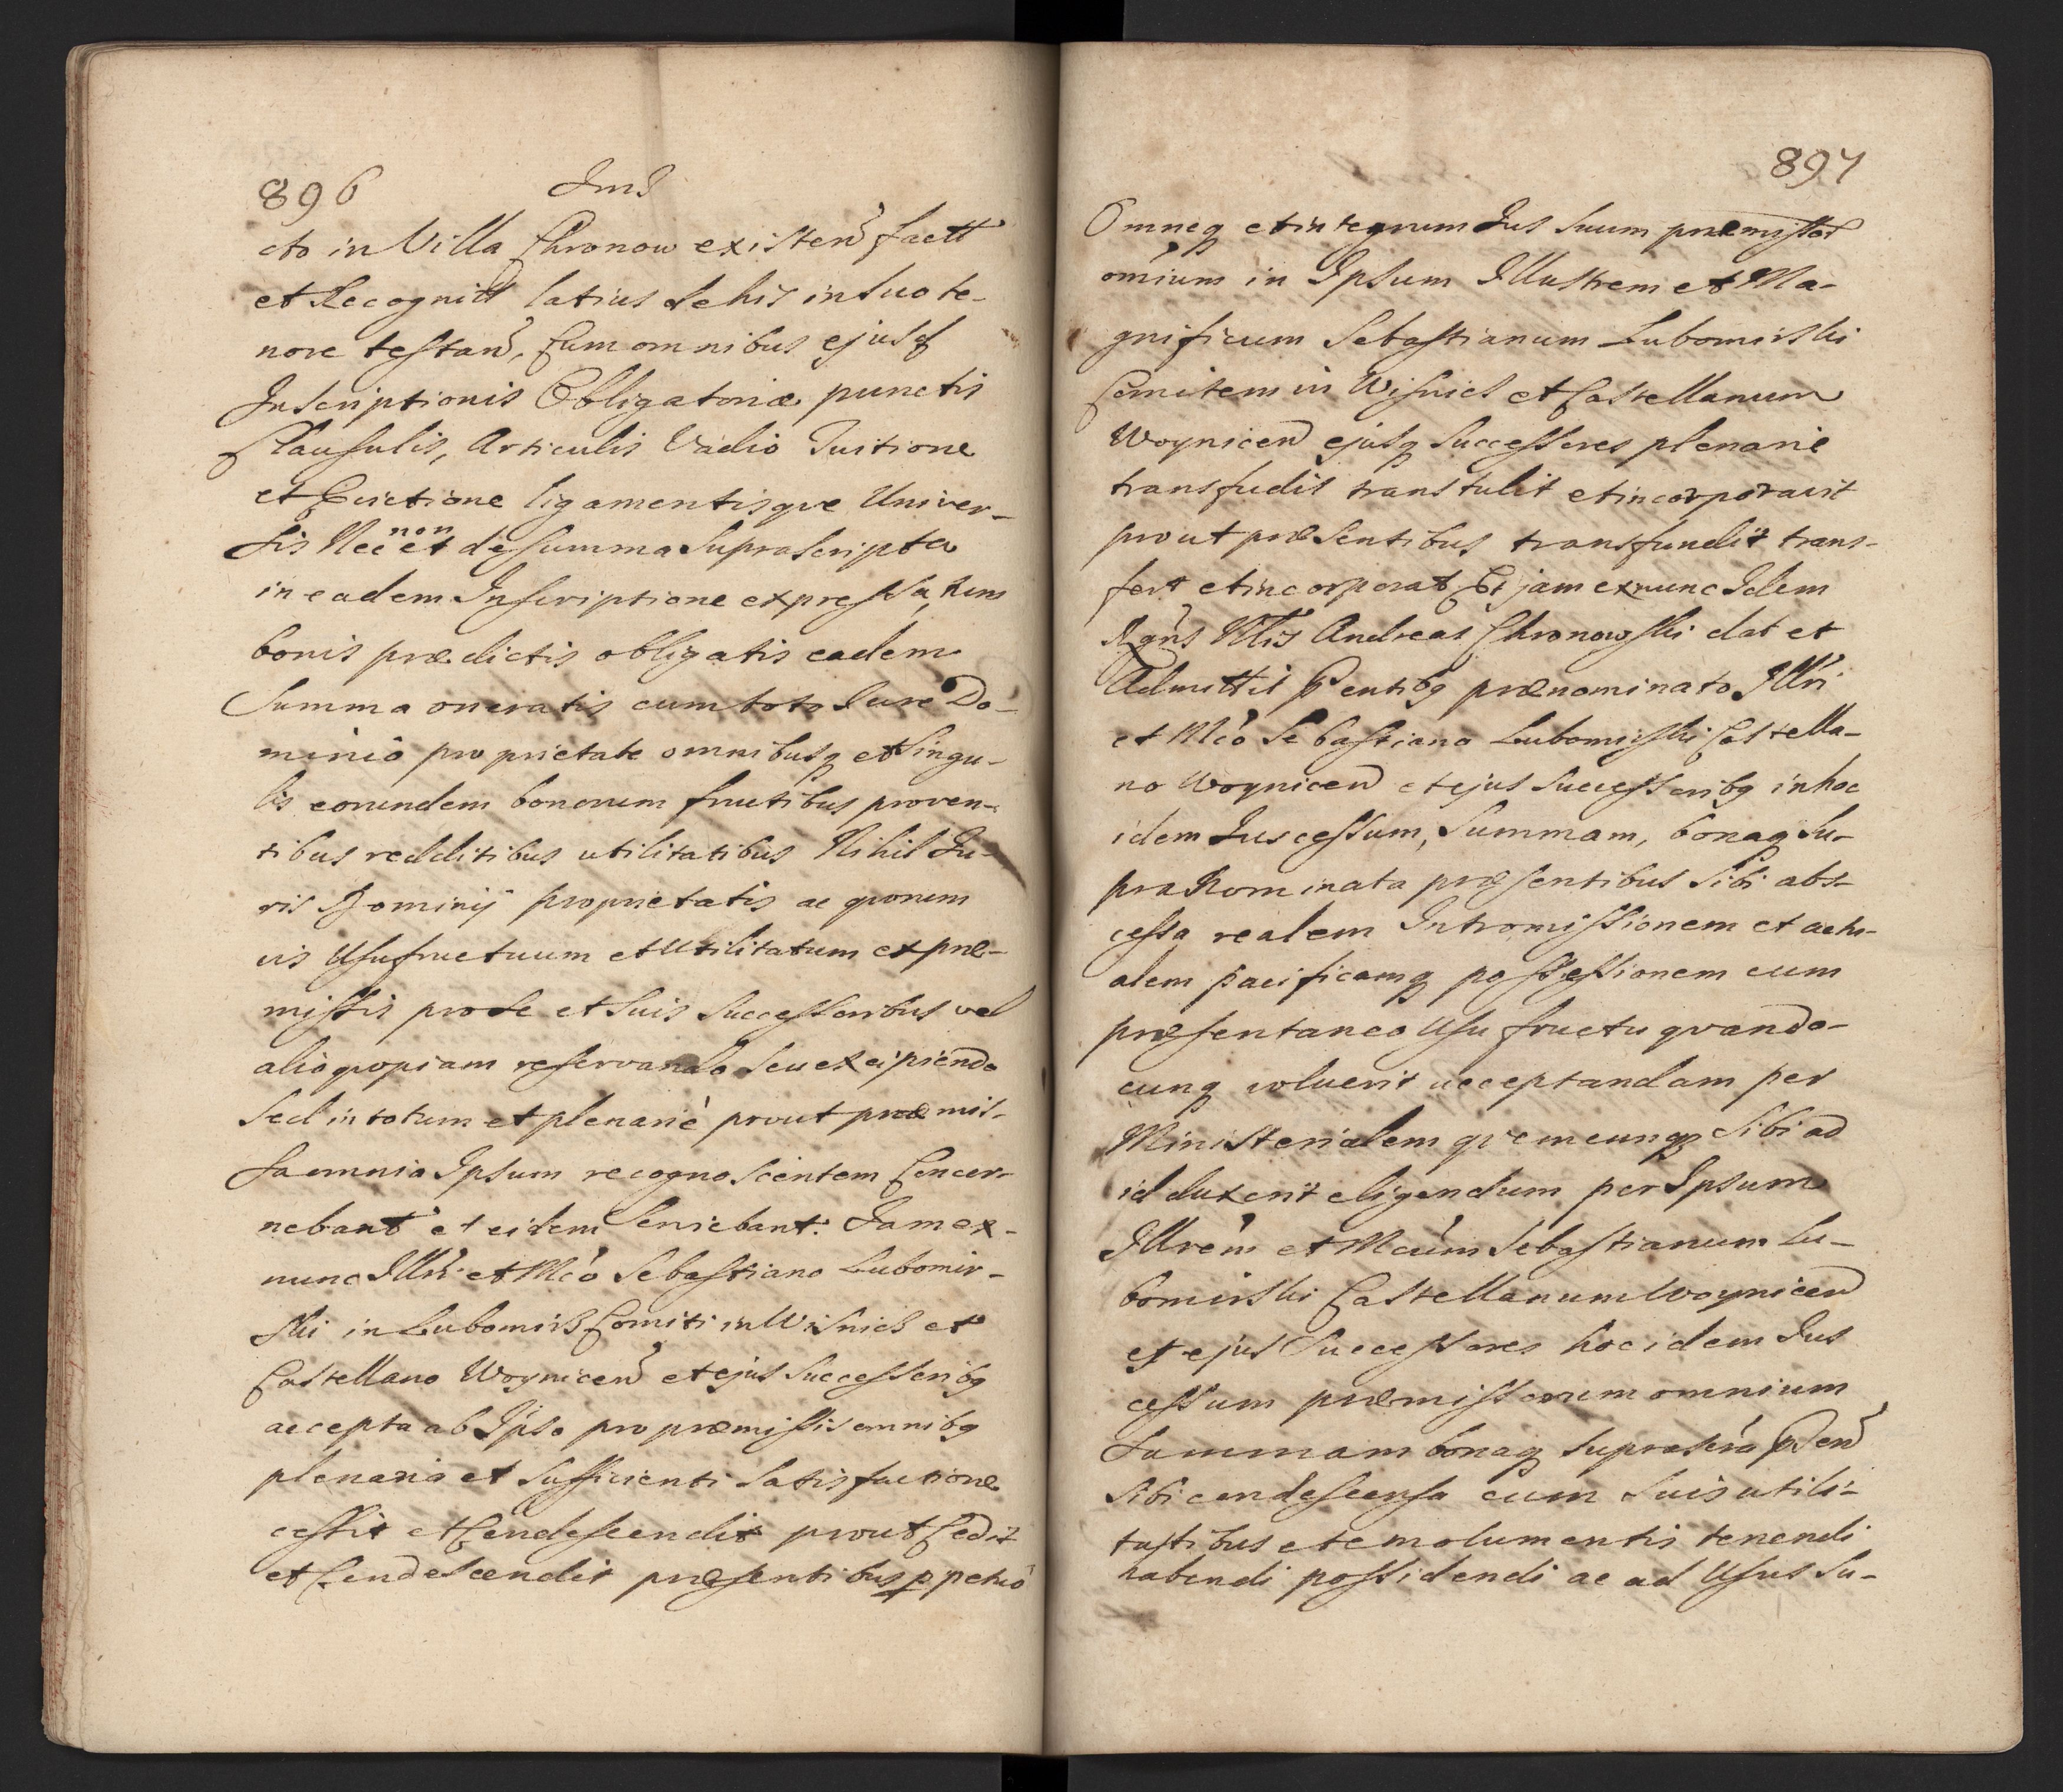 896 JmJ
cto in Villa Chronow existen͠ factt
et Recognitt latius de his in suo te-
nore testan͠, Cum omnibus ejusd
Inscriptionis Obligatoriæ punctis
Clausulis, Articulis Vadio Tuitione
et Evictione ligamentisque Univer-
sis Nec non et de summa supra scripta
in eadem Inscriptione expressa, tum
bonis prædictis obligatis eadem
Summa oneratis cum toto Jure Do-
minio proprietate omnibusq et singu-
lis eorundem bonorum fructibus proven-
tibus redditibus utilitatibus Nihil Ju-
ris Dominij proprietatis ac quorum
vis Usufructuum et Utilitatum ex præ-
missis pro se et suis Successoribus vel
alio quopiam reservando seu excipiendo
sed in totum et plenariè prout præmis-
sa omnia Ipsum recognoscentem Concer-
nebant et eidem serviebant. Jam ex-
nunc Illri et Mco Sebastiano Lubomir-
ski in Lubomirz Comiti in Wisnicz et
Castellano Woynicen͠ et ejus Successoribq
accepta ab Ipso pro præmissis omnibq
plenaria et sufficienti satisfactione
cessit et Condescendit prout Cedit
et Condescendit præsentibus ppetuò
897
Omneq et integrum Jus suum præmissor
omium in Ipsum Illustrem et Ma-
gnificum Sebastianum Lubomirski
Comitem in Wisnicz et Castellanum
Woynicen͠ ejusq Successores plenarie
transfudit transtulit et incorporavit
prout præsentibus transfundit trans-
fert et incorporat Et jam exnunc Idem
Rgns Nblis Andreas Chronowski dat et
Admittit p͠entibq prænominato Illri
et Mco Sebastiano Lubomirski Castella-
no Woynicen͠ et ejus Successoribq in hoc
idem Jus cessum, Summam, bonaq Su-
pra Nominata præsentibus sibi abs-
cessa realem Intromissionem et actu-
alem pacificamq possessionem cum
præsentaneo Usu fructu quando-
cunq voluerit acceptandam per
Ministerialem quemcunq Sibi ad
id duxerit eligendum per Ipsum
Illrem et Mcum Sebastianum Lu-
bomirski Castellanum Woynicen͠
et ejus Successores hoc idem Jus
cessum præmissorum omnium
Summam bonaq suprascra p͠en͠
sibi condescensa cum suis utili-
tatibus et emolumentis tenendi
habendi possidendi ac ad Usus Su-